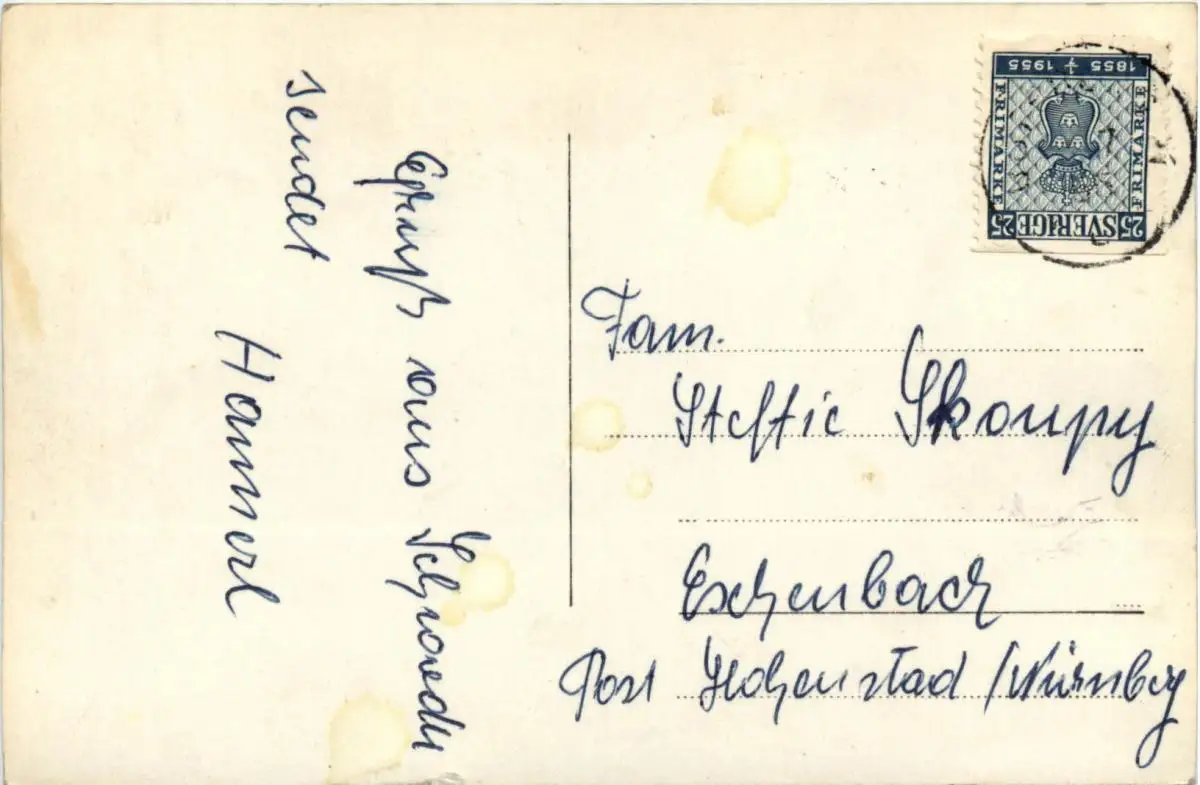 Gruß aus Schweden
sendet
Hannerl
1855 1955
FRIMÄRKE
FRIMÄRKE
25 SVERIGE 25
Fam.
Steffie Skoupy
Eschenbach
Post Hohenstad /Nürnbg